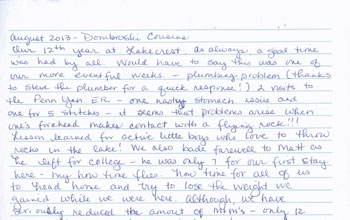 August 2013 - Dombroski Cousins
Our 12th year at Lakecrest. As always, a good time
was had by all. Would have to say this was one of
our more eventful weeks - plumbing problem (thanks
to Steve the plumber for a quick response!) 2 visits to
the Penn Yan ER - one nasty stomach issue and
one for 5 stitches - it seems that problems arise when
one's forehead makes contact with a flying rock!!!
Lesson learned for active little boys who love to throw
rocks in the lake! We also bade farewell to Matt as
he left for college - he was only 7 for our first stay
here - my how time flies. Now time for all of us
to head home and try to lose the weight we
gained while we were here. Although, we have
reduced the amount of - only 12